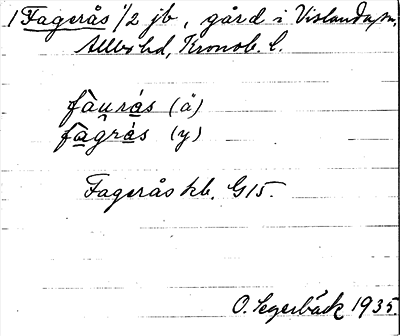 1 Fagerås 1/2 jb, gård i Vislanda sn,
Allbo hd, Kronob. l.
faurás (ä)
fagrás (y)
Fagerås kb. G15.
O. Segerbäck 1935.